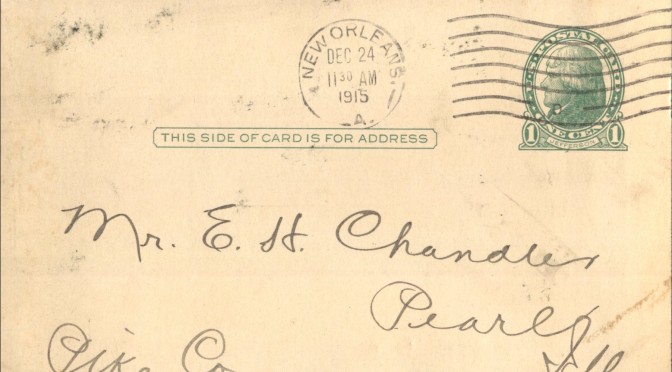 NEW ORLEANS.
DEC 24
11 30 AM
1915
A
U.S. POSTAL CARD
1 ONE CENT 1
JEFFERSON
THIS SIDE OF CARD IS FOR ADDRESS
Mr. E. H. Chandler
Pearl
Pike Co. Ill